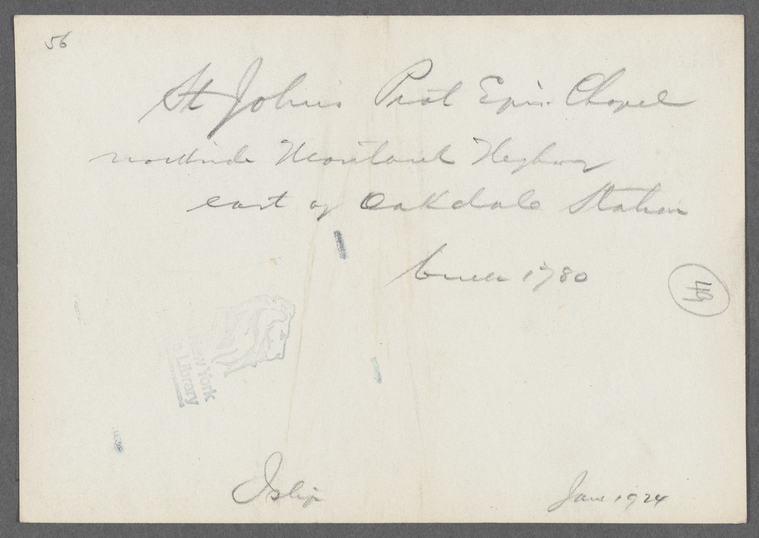 56
St John's Prot Epis. Chapel
northside Montauk Highway
east of Oakdale Station
built 1780
49
New York
Library
Islip
Jan 1924